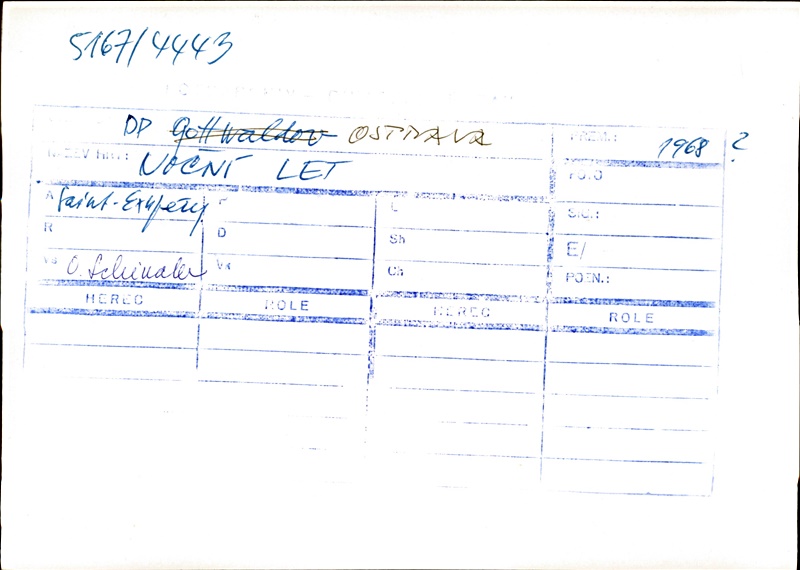 5167/4443
DP Gottwaldov OSTRAVA PREM.: 1968 ?
NÁZEV INSC.: NOČNÍ LET FOTO
A Saint-Exupéry L SIGN.:
R D Sh E/
O. Schindler Vk Ch POZN.:
HEREC ROLE HEREC ROLE